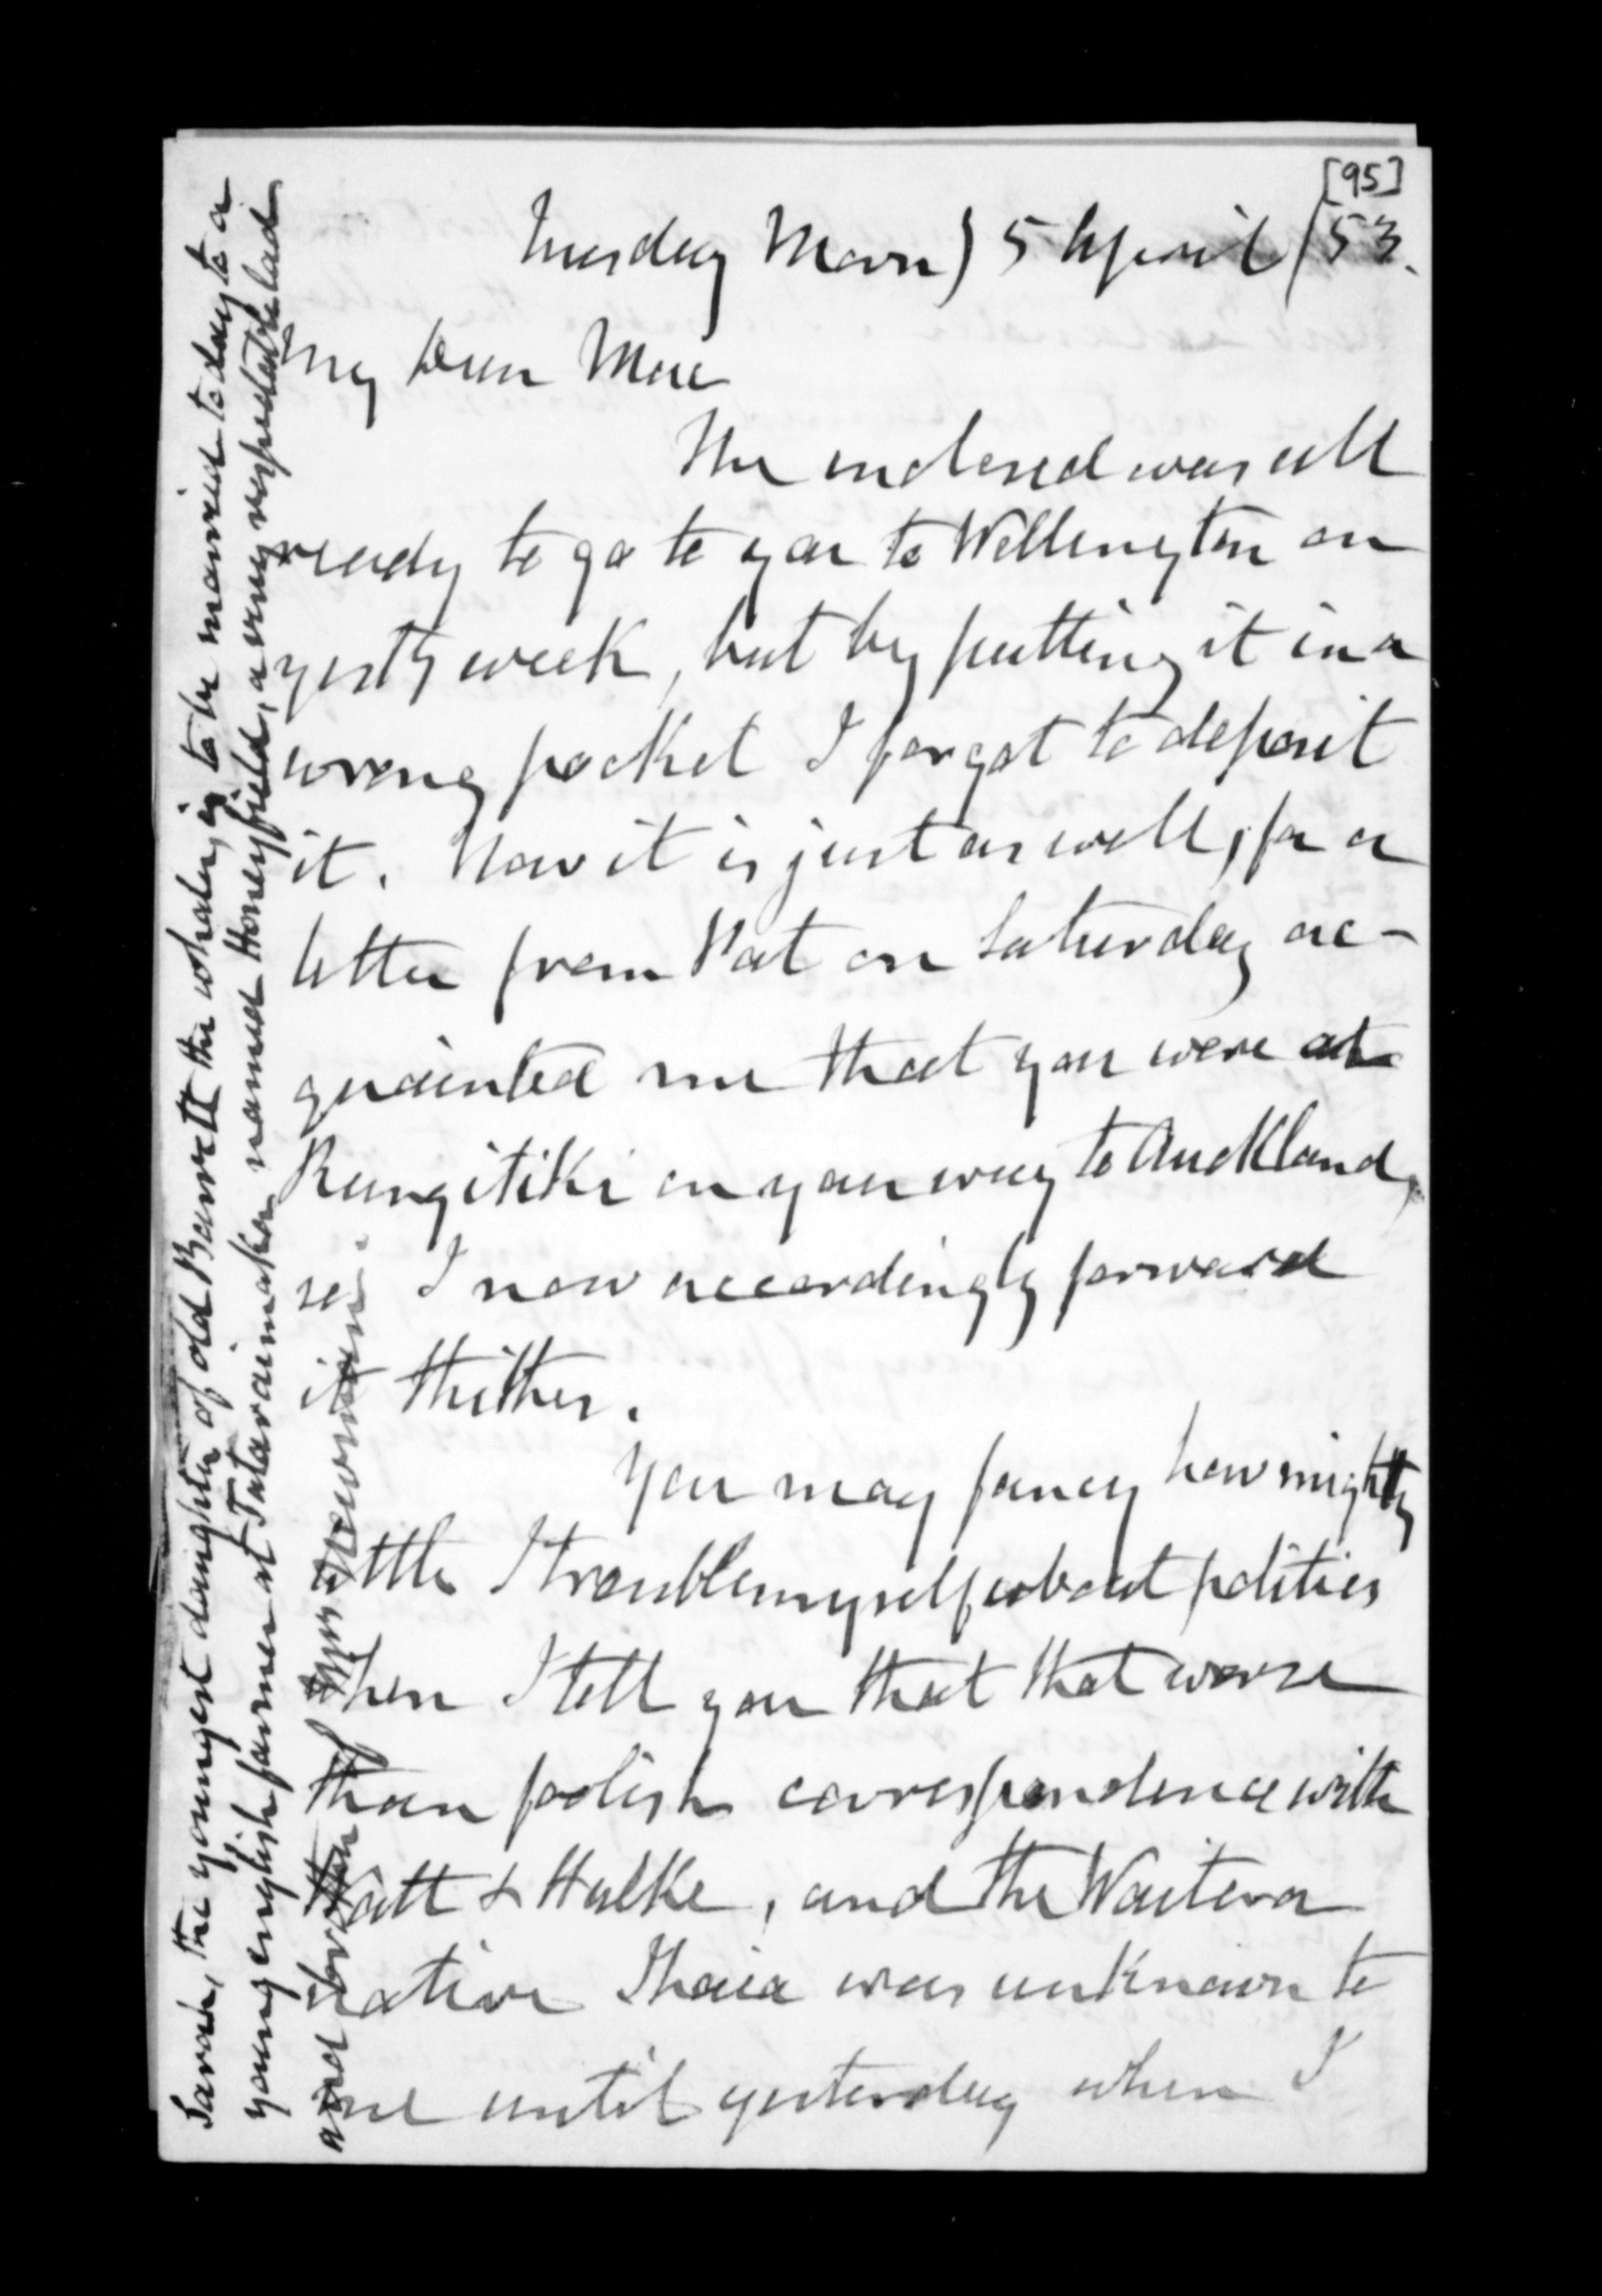 [95]
Tuesday Morn) 5 April /53.
My Dear Mac
The enclosed was all
ready to go to you to Wellington on
yesty week, but by putting it in a
wrong pocket I forgot to deposit
it. Now it is just as well, for a
letter from Pat on Saturday ac-
quainted me that you were at
Rangitiki on your way to Auckland,
so I now accordingly forward
it thither.
You may fancy how mighty
little I trouble myself about politics
when I tell you that that worse
than foolish correspondence with
Watt & Halke, and the Waitera
native Ihaia was unknown to
me until yesterday when I
Sarah, the youngest daughter of old Barrett the whaler, is to be married to day to a
young english farmer at Tataraimaka named Honeyfield, a very respectable lad
and brother of Mrs